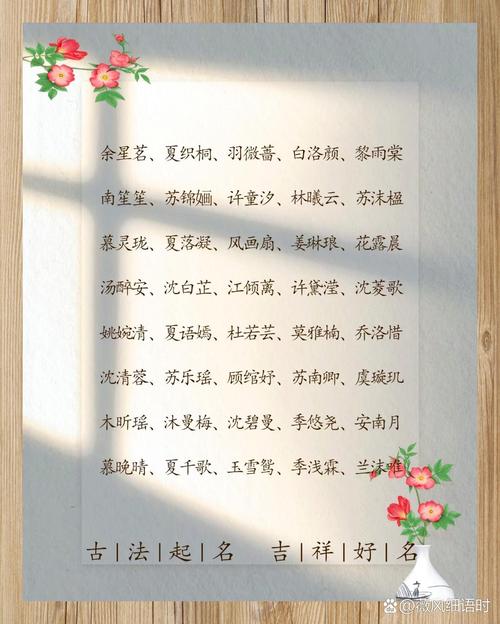 余星茗、夏织桐、羽微蔷、白洛颜、黎雨棠
南笙笙、苏锦婳、许童汐、林曦云、苏沫楹
慕灵珑、夏落凝、风画扇、姜琳琅、花露晨
汤醉安、沈白芷、江倾蓠、许黛滢、沈菱歌
姚婉清、夏语嫣、杜若芸、莫雅楠、乔洛惜
沈清蓉、苏乐瑶、顾绾妤、苏南卿、虞璇玑
木昕瑶、沐曼梅、沈碧曼、季悠尧、安南月
慕晚晴、夏千歌、玉雪鸳、季浅霖、兰沫唯
古|法|起|名 吉|祥|好|名
百家号/微风细语时